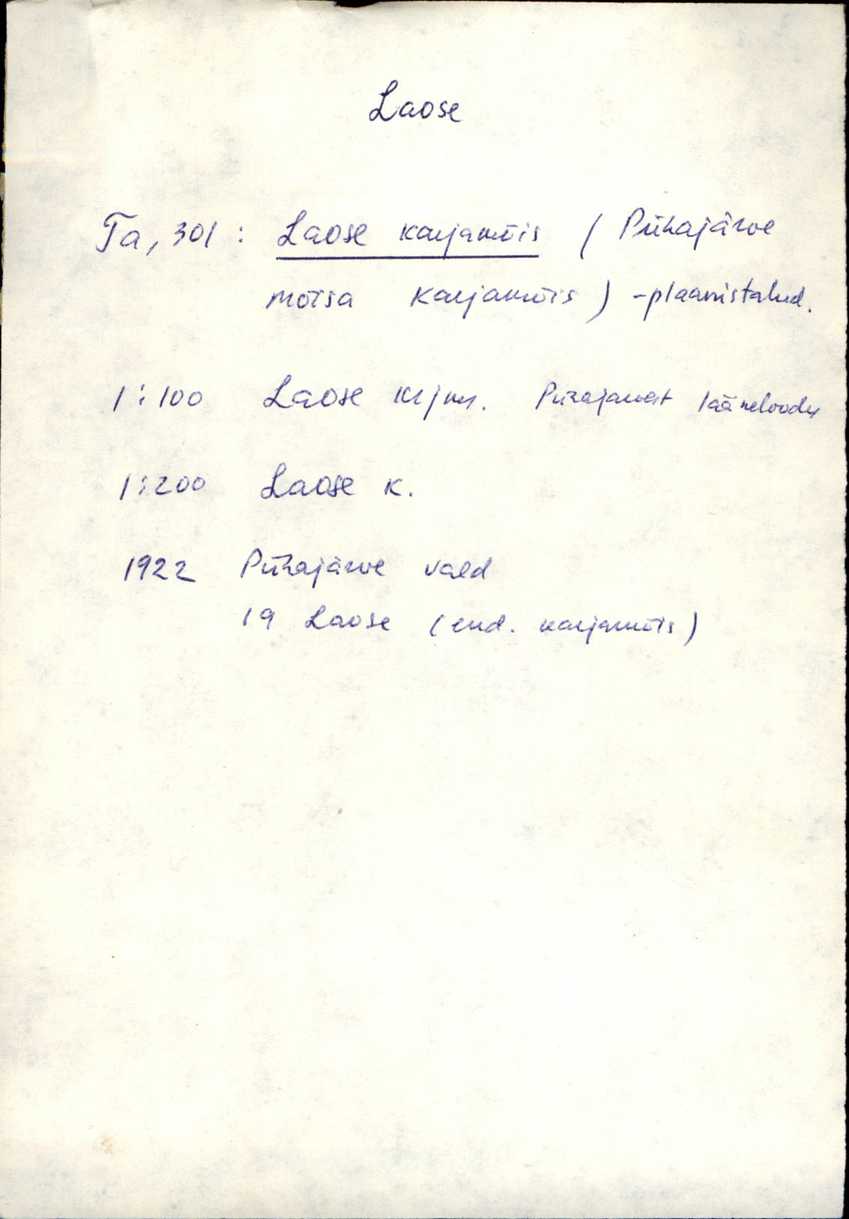 Laose
Ta, 301 : Laose karjamõis ( Pühajärve
mõisa karjamõis ) - plaanistatud.
1:100 Laose krjms. Pühajärvest
1:200 Laose k.
1922 Pühajärve vald
19 Laose (end. karjamõis)